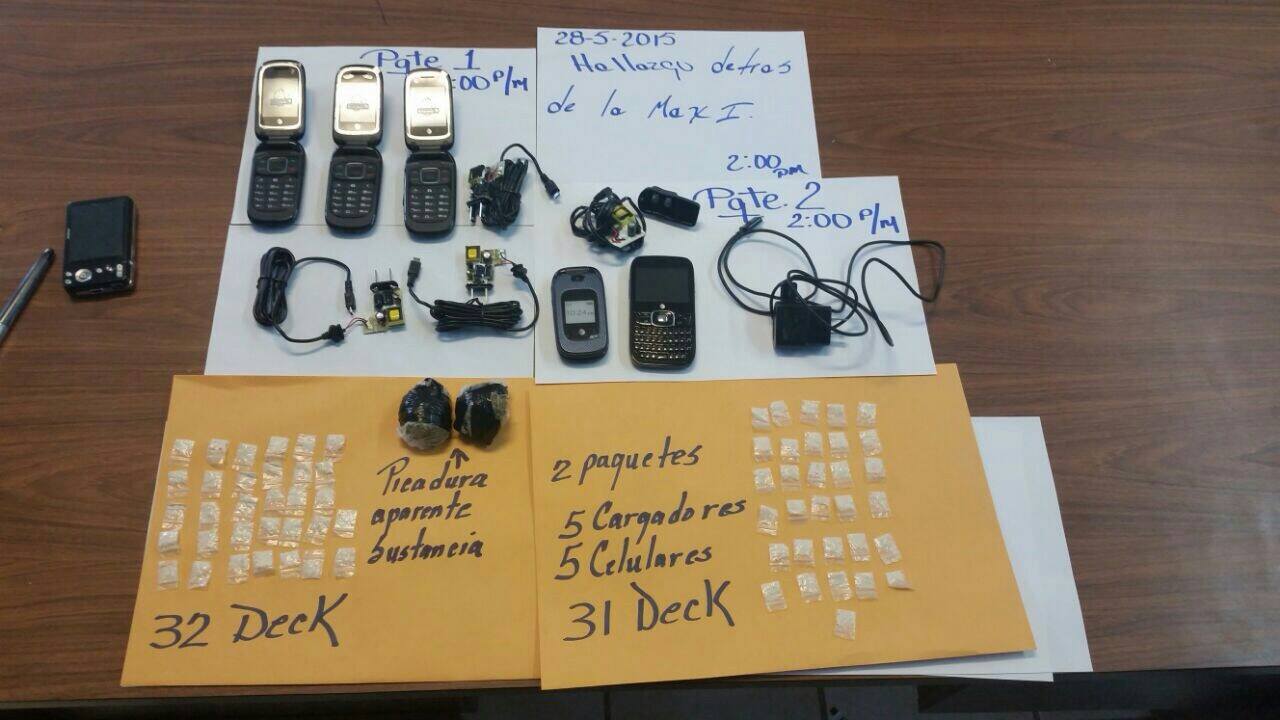 28-5-2015
Hallazgo detras
de la Max I.
2:00 pm
Pqte 1
2:00 P/M
Pqte. 2
2:00 P/M
10:24
Picadura
aparente
Sustancia
32 Deck
2 paquetes
5 Cargadores
5 Celulares
31 Deck